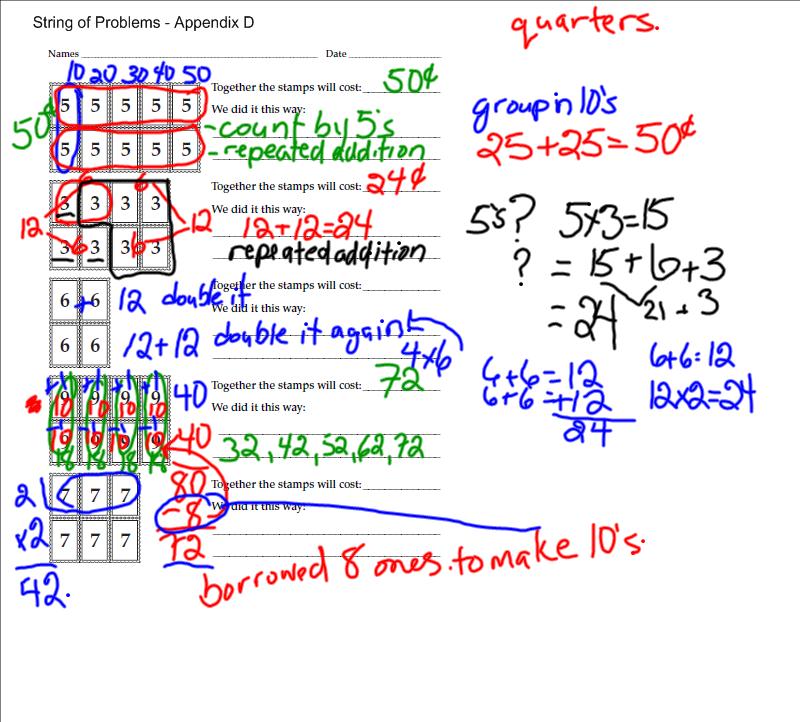 String of Problems - Appendix D
quarters.
Names Date
10 20 30 40 50
Together the stamps will cost: 50¢
5 5 5 5 5
We did it this way:
50¢
-count by 5's
5 5 5 5 5
-repeated addition
group in 10's
25+25=50¢
Together the stamps will cost: 24¢
6 6
3 3 3 3
We did it this way:
12 12
12+12=24
3 3 3 3
6 6
repeated addition
5's? 5x3=15
? = 15+6+3
= 24 21 + 3
Together the stamps will cost:
6 + 6 12 double it
We did it this way:
6 6 12+12 double it again!
4x6
6+6=12
6+6=+12
24
6+6=12
12x2=24
Together the stamps will cost: 72
+1 +1 +1 +1
9 9 9 9 40
10 10 10 10
We did it this way:
9 9 9 9 40
10 10 10 10
18 18 18 18
32, 42, 52, 62, 72
80
-8
72
Together the stamps will cost:
21 7 7 7
We did it this way:
x2 7 7 7
42.
borrowed 8 ones. to make 10's.